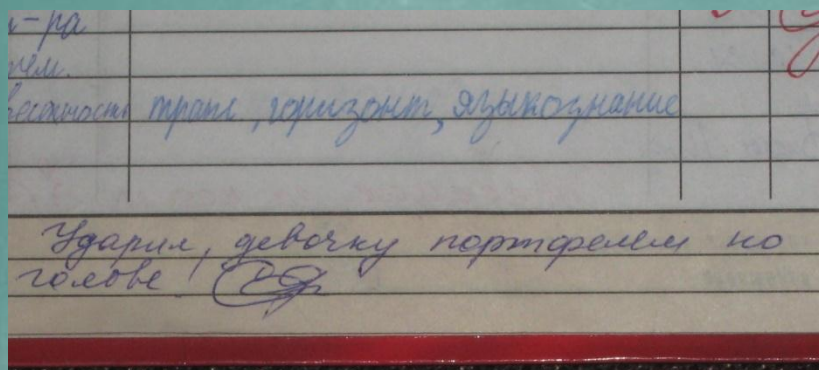 -ра
тем.
трапе, горизонт, языкознание
Ударил, девочку портфелем по
голове